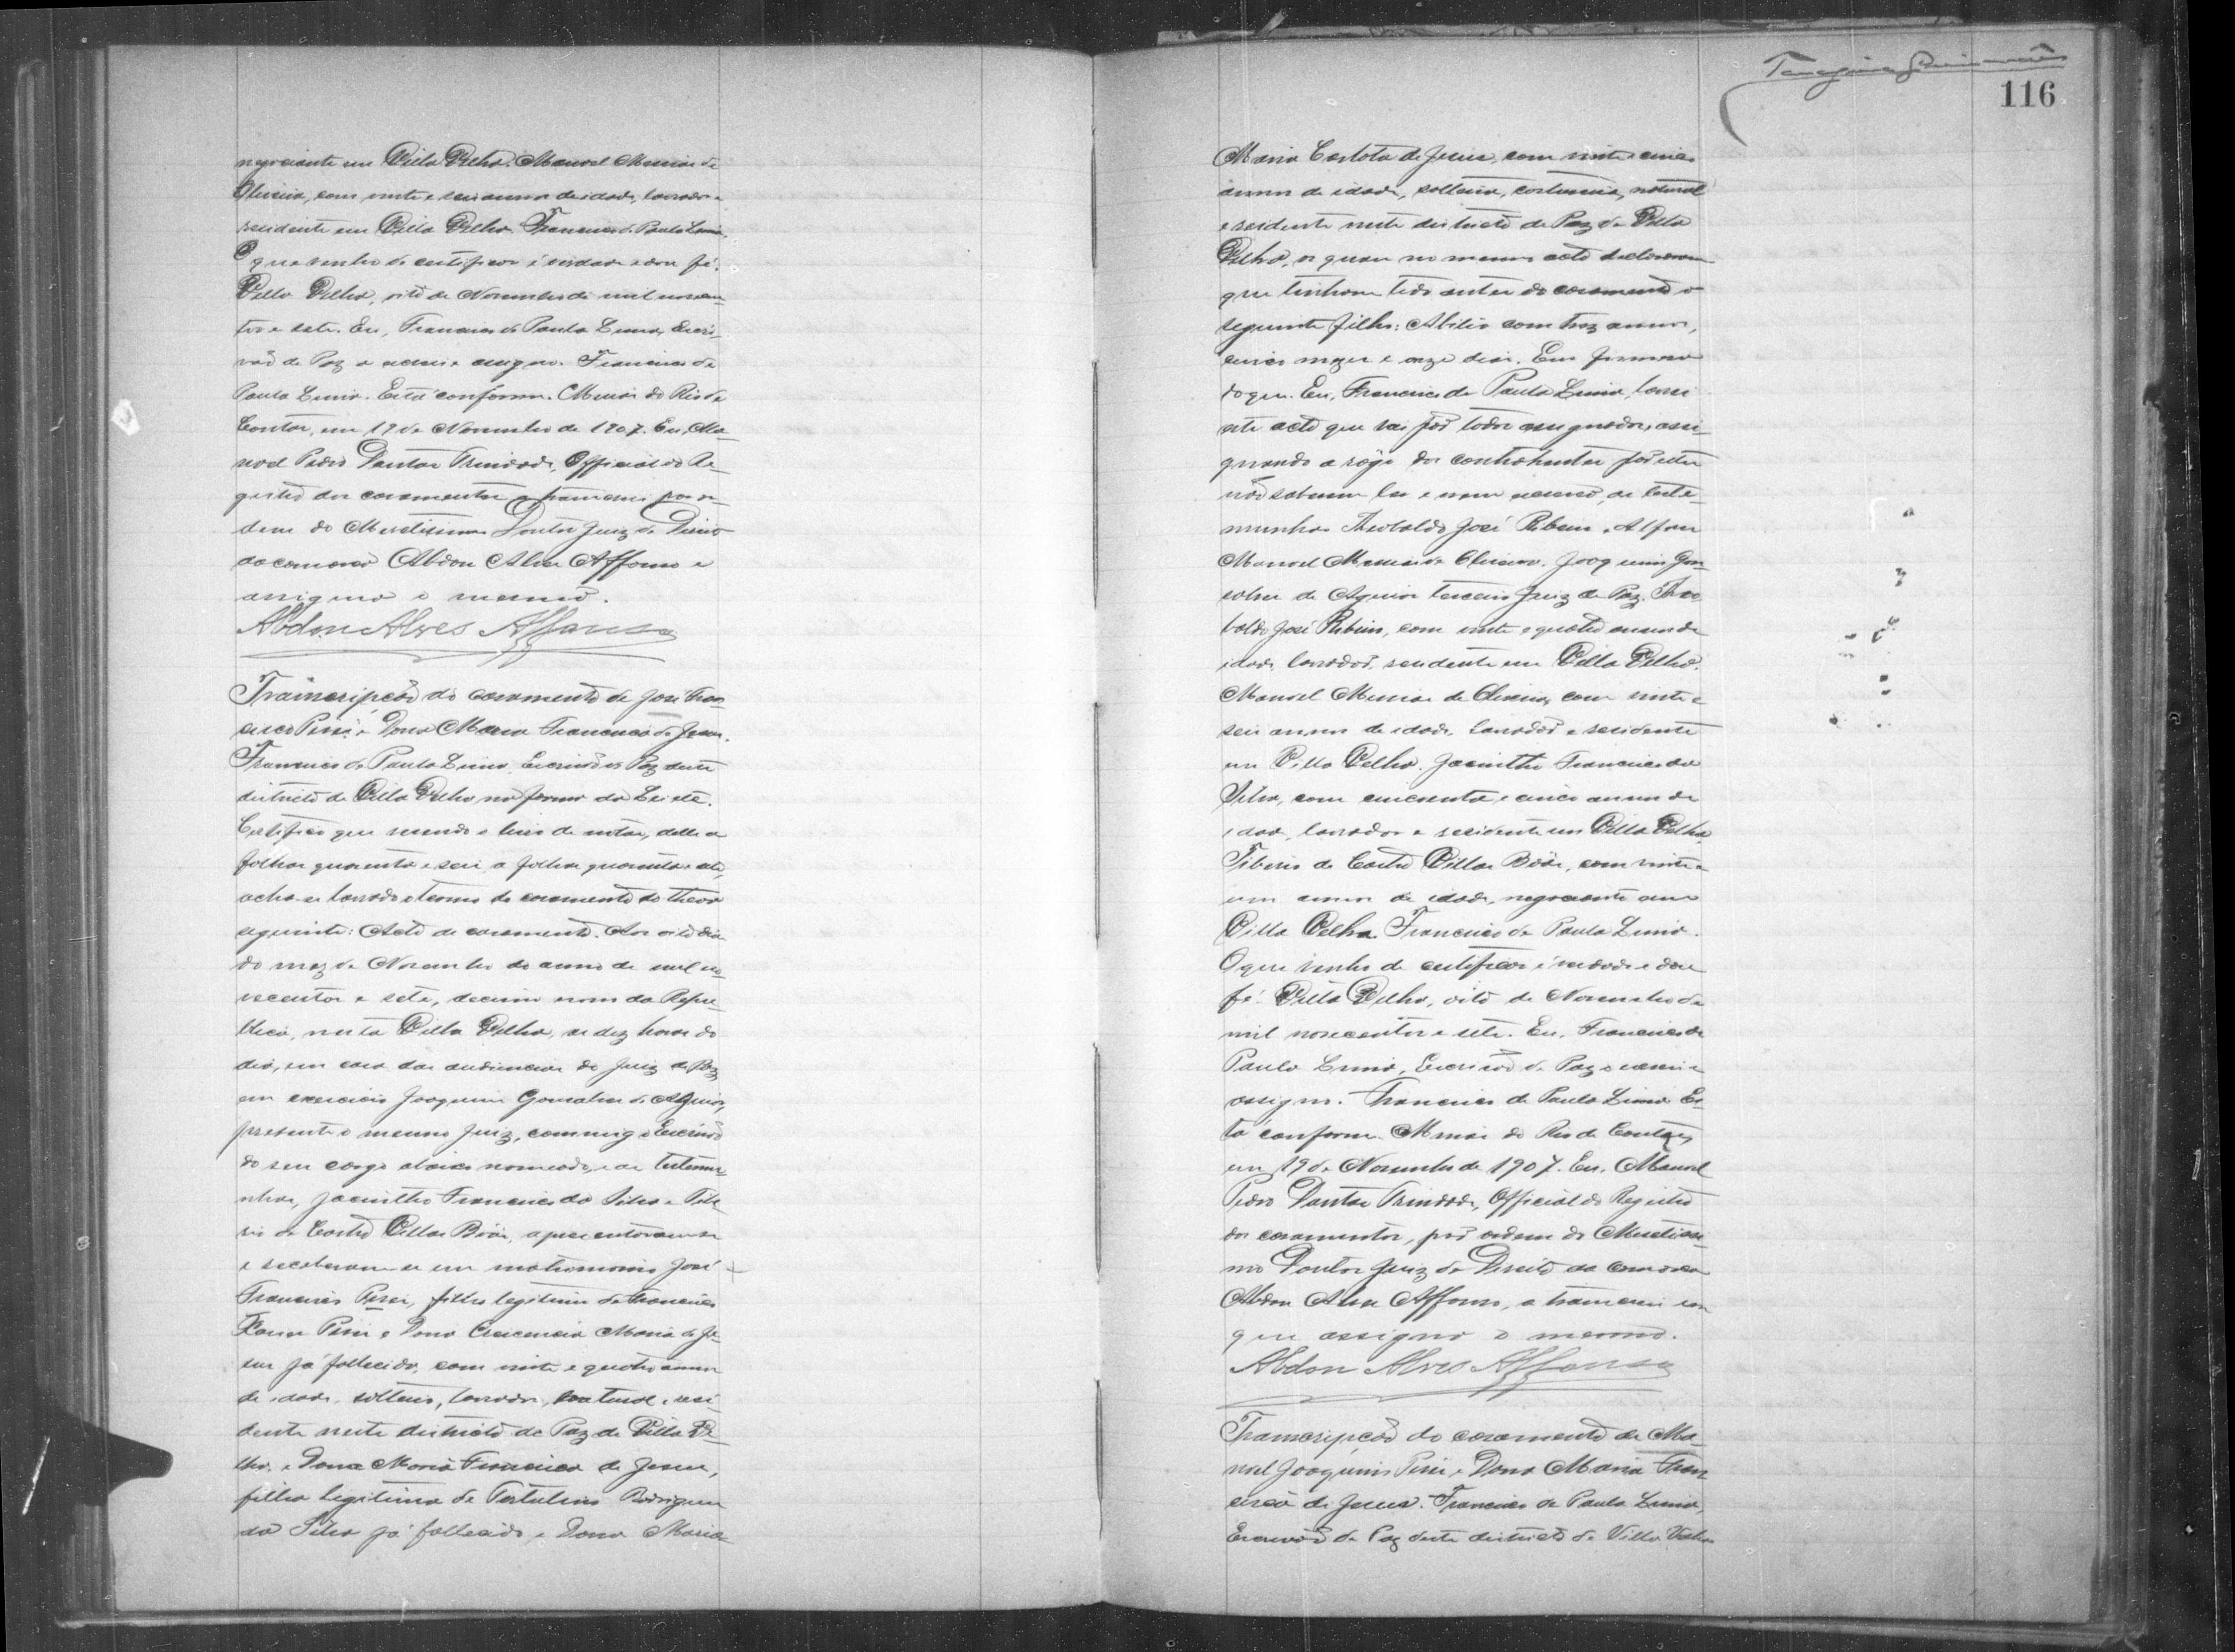 negociante em Villa Velha. Manoel Messias de
Oliveira, com vinte e seis annos de idade, lavrador e
residente em Villa Velha. Francisco de Paula Lima.
O que venho de certificar é verdade e dou fé.
Villa Velha, oito de Novembro de mil novecen-
tos e sete. Eu, Francisco de Paula Lima, Escri-
vão de Paz o escrevi e assigno. Francisco de
Paula Lima. Está conforme. Minas do Rio de
Contas, em 19 de Novembro de 1907. Eu, Ma-
noel Pedro Dantas Trindade, Official do Re-
gistro dos casamentos a transcrevi por or-
dem do Meretissimo Doutor Juiz de Direito
da comarca Abdon Alves Affonso e
assigna o mesmo.
Abdon Alves Affonso
Transcripção do casamento de José Fran-
cisco Pires e Dona Maria Francisca de Jesus.
Francisco de Paula Lima, Escrivão de Paz deste
districto de Villa Velha na forma da Lei etc.
Certifico que revendo o livro de notas, delle a
folhas quarenta e seis a folhas quarenta e
acha-se lavrado o termo de casamento do theor
seguinte: Acto de casamento. Aos oito dias
do mez de Novembro do anno de mil no-
vecentos e sete, decimo nono da Repu-
blica, nesta Villa Velha, as dez horas do
dia, em casa das audiencias do Juiz de Paz
em exercicio Joaquim Gonsalves de Aguiar,
presente o mesmo Juiz, commigo Escrivão
do seu cargo abaixo nomeado, e as testemu-
nhas, Jacintho Francisco da Silva e Tibe-
rio de Castro Villas Bôas, apresentaram-se
e receberam-se em matrimonio José
Francisco Pires, filho legitimo de Francisco
Xavier Pires e Dona Crescencia Maria de Je-
sus já fallecida, com vinte e quatro annos
de idade, solteiro, lavrador, natural e resi-
dente neste districto de Paz de Villa Ve-
lha, e Dona Maria Francisca de Jesus,
filha legitima de Tertulino Rodrigues
da Silva já fallecido, e Dona Maria
116
Maria Carlota de Jesus, com vinte e cinco
annos de idade, solteira, costureira, natural
e residente neste districto de Paz de Villa
Velha, os quaes no mesmo acto declararam
que tinham tido antes do casamento o
seguinte filho: Abilio com trez annos,
cinco mezes e onze dias. Em firmesa
do que. Eu, Francisco de Paula Lima, lavrei
este acto que vai por todos assignados, assi-
gnando a rôgo dos contrahentes por estes
não saberem ler e nem escrever, as teste-
munhas Theobaldo José Ribeiro e
Manoel Messias de Oliveira. Joaquim Gon-
salves de Aguiar terceiro Juiz de Paz. Theo-
baldo José Ribeiro, com vinte e quatro annos de
idade, lavrador, residente em Villa Velha.
Manoel Messias de Oliveira, com vinte e
seis annos de idade, lavrador e residente
em Villa Velha. Jacintho Francisco da
Silva, com cincoenta e cinco annos de
idade, lavrador e residente em Villa Velha.
Tiberio de Castro Villas Bôas, com vinte e
um annos de idade, negociante em
Villa Velha. Francisco de Paula Lima.
O que venho de certificar é verdade e dou
fé. Villa Velha, oito de Novembro de
mil novecentos e sete. Eu, Francisco de
Paula Lima, Escrivão de Paz o escrevi e
assigno. Francisco de Paula Lima. Es-
tá conforme. Minas do Rio de Contas,
em 19 de Novembro de 1907. Eu, Manoel
Pedro Dantas Trindade, Official do Registro
dos casamentos, por ordem do Meretissi-
mo Doutor Juiz de Direito da comarca
Abdon Alves Affonso, a transcrevi em
que assigna o mesmo.
Abdon Alves Affonso
Transcripção do casamento de Ma-
noel Joaquim Pires e Dona Maria Fran-
cisca de Jesus. Francisco de Paula Lima,
Escrivão de Paz deste districto de Villa Velha